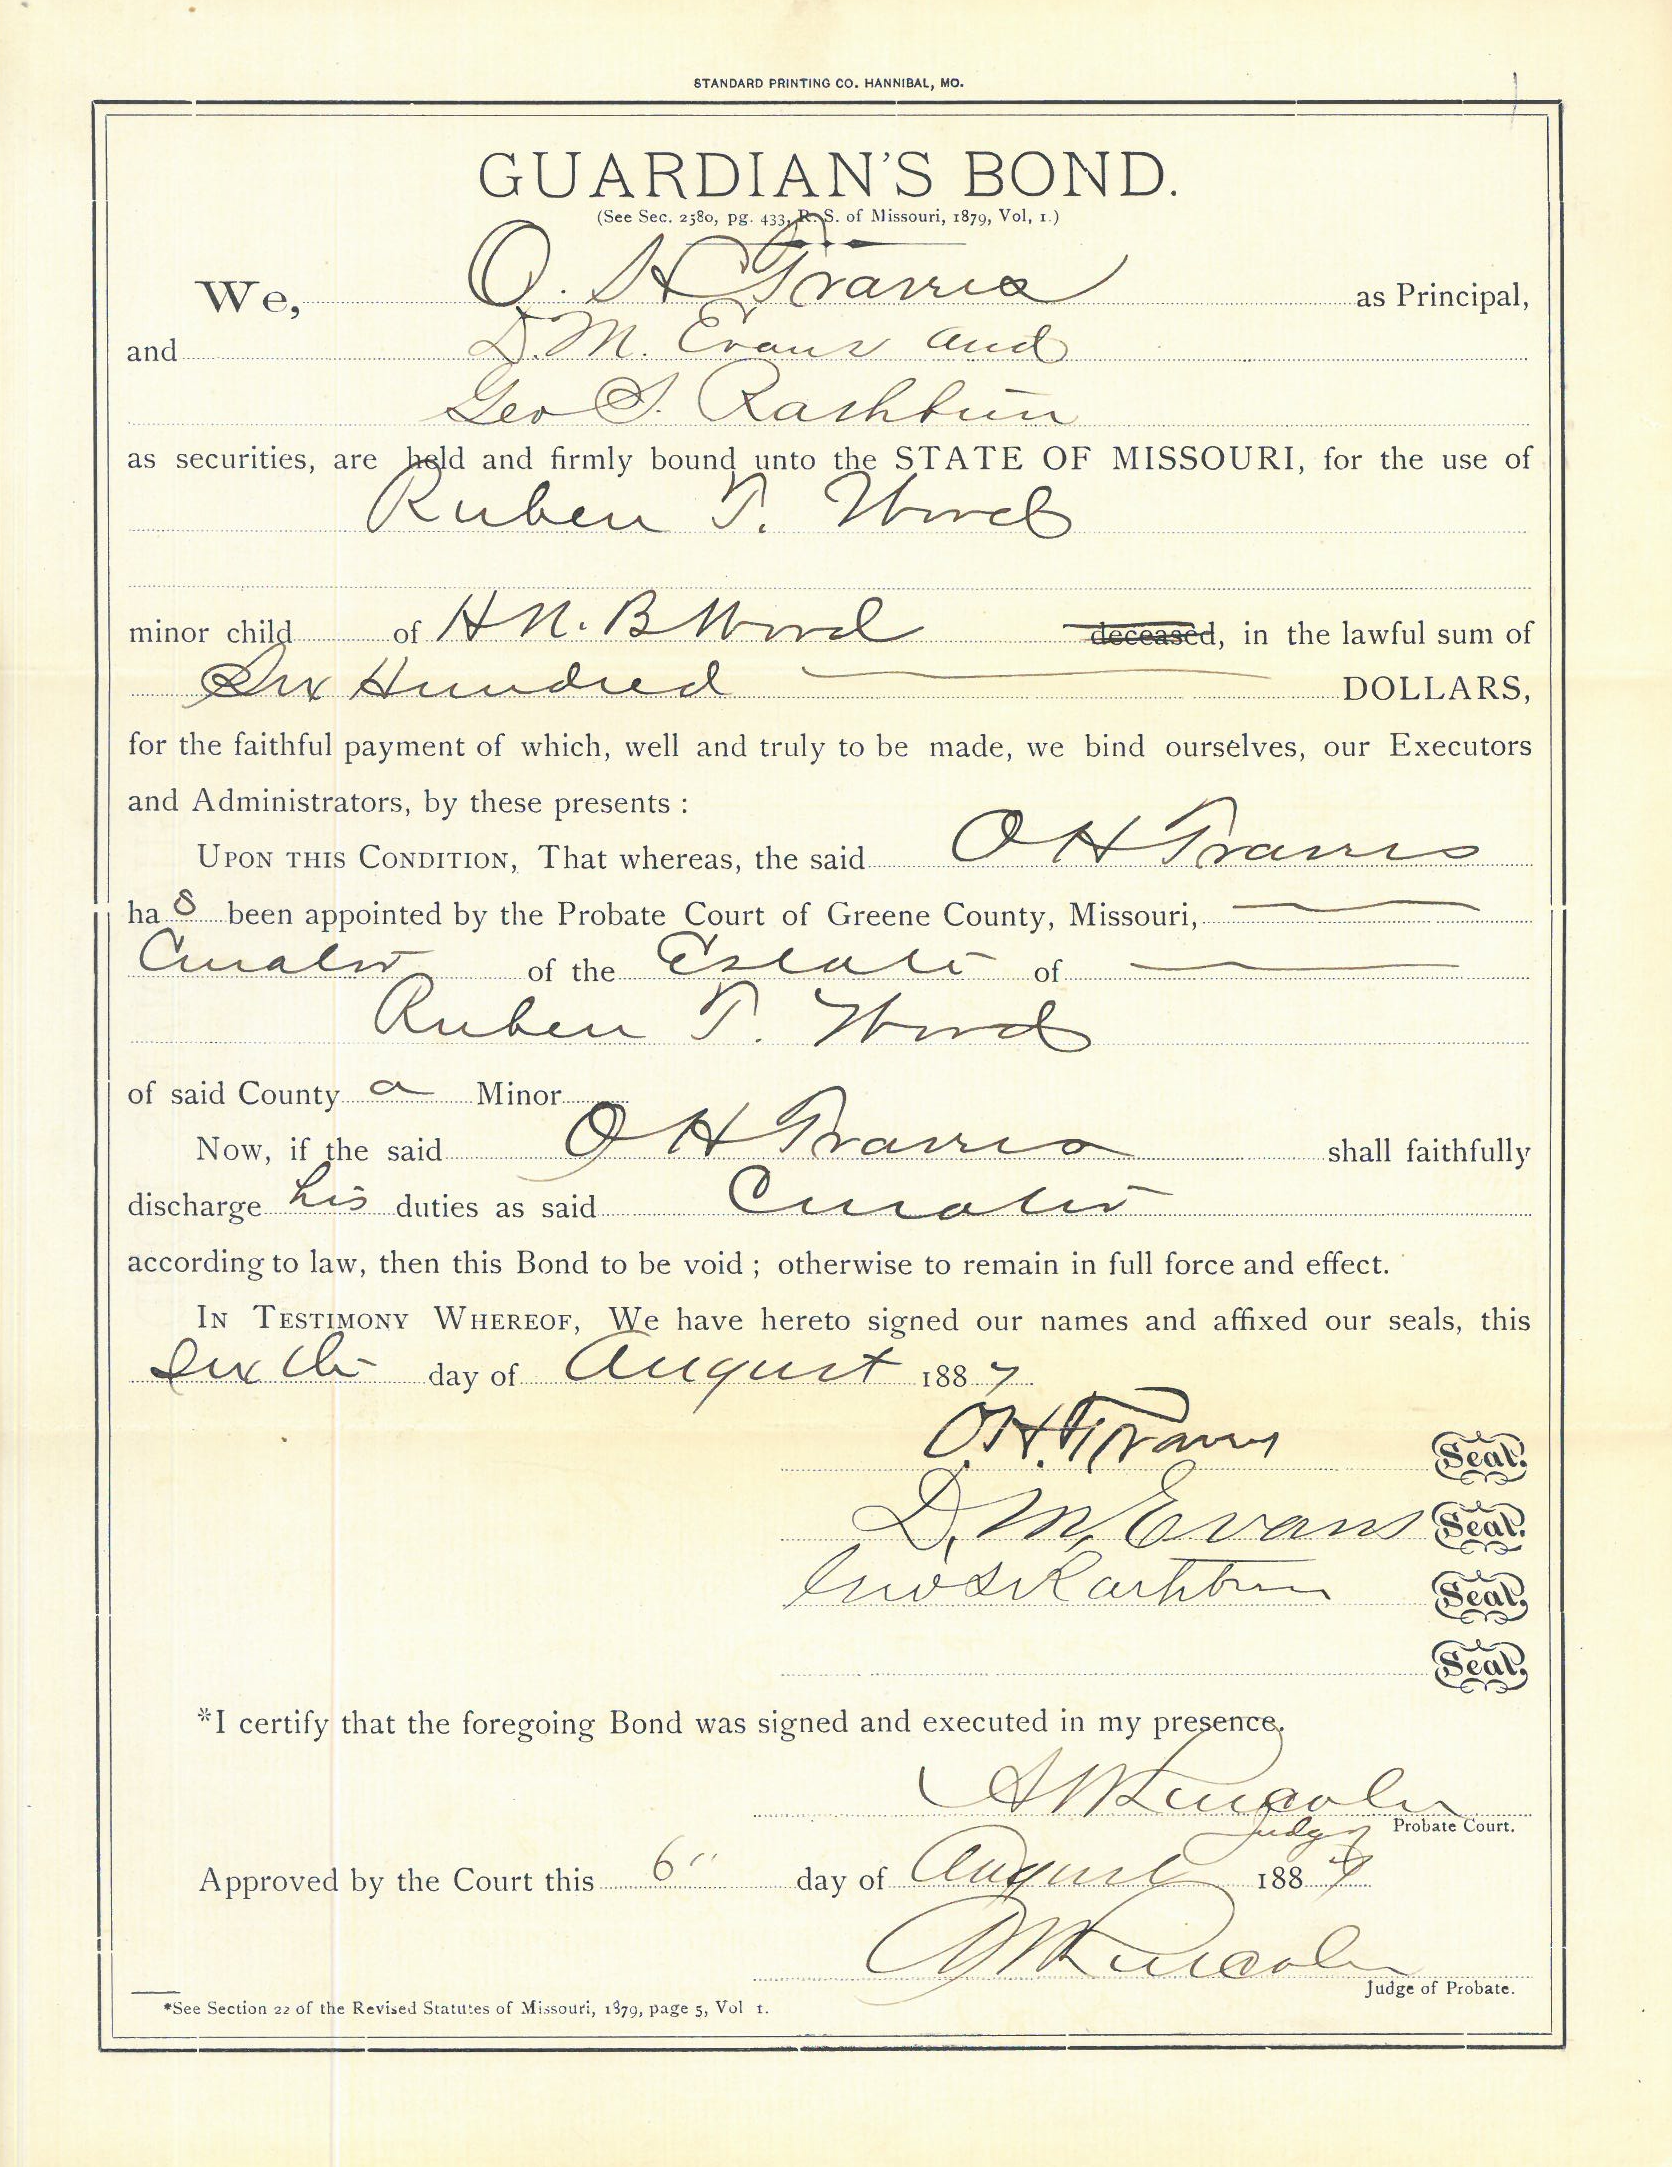 STANDARD PRINTING CO. HANNIBAL, MO.
GUARDIAN'S BOND.
(See Sec. 2580, pg. 433, R. S. of Missouri, 1879, Vol, 1.)
We, O. H Travris as Principal,
and D. M. Evans and
Geo S. Rashbun
as securities, are held and firmly bound unto the STATE OF MISSOURI, for the use of
Ruben T. Word
minor child of H N. B Word deceased, in the lawful sum of
Six Hundred DOLLARS,
for the faithful payment of which, well and truly to be made, we bind ourselves, our Executors
and Administrators, by these presents :
UPON THIS CONDITION, That whereas, the said O H Travris
has been appointed by the Probate Court of Greene County, Missouri,
Curator of the Estate of
Ruben T. Word
of said County a Minor
Now, if the said O H Travris shall faithfully
discharge his duties as said Curator
according to law, then this Bond to be void ; otherwise to remain in full force and effect.
IN TESTIMONY WHEREOF, We have hereto signed our names and affixed our seals, this
Sixth day of August 1887
O. H. Seal.
D. M. Evans Seal.
Geo S Rashbun Seal.
Seal.
*I certify that the foregoing Bond was signed and executed in my presence.
Lincoln
Judge Probate Court.
Approved by the Court this 6" day of August 1887
Lincoln
Judge of Probate.
*See Section 22 of the Revised Statutes of Missouri, 1879, page 5, Vol 1.